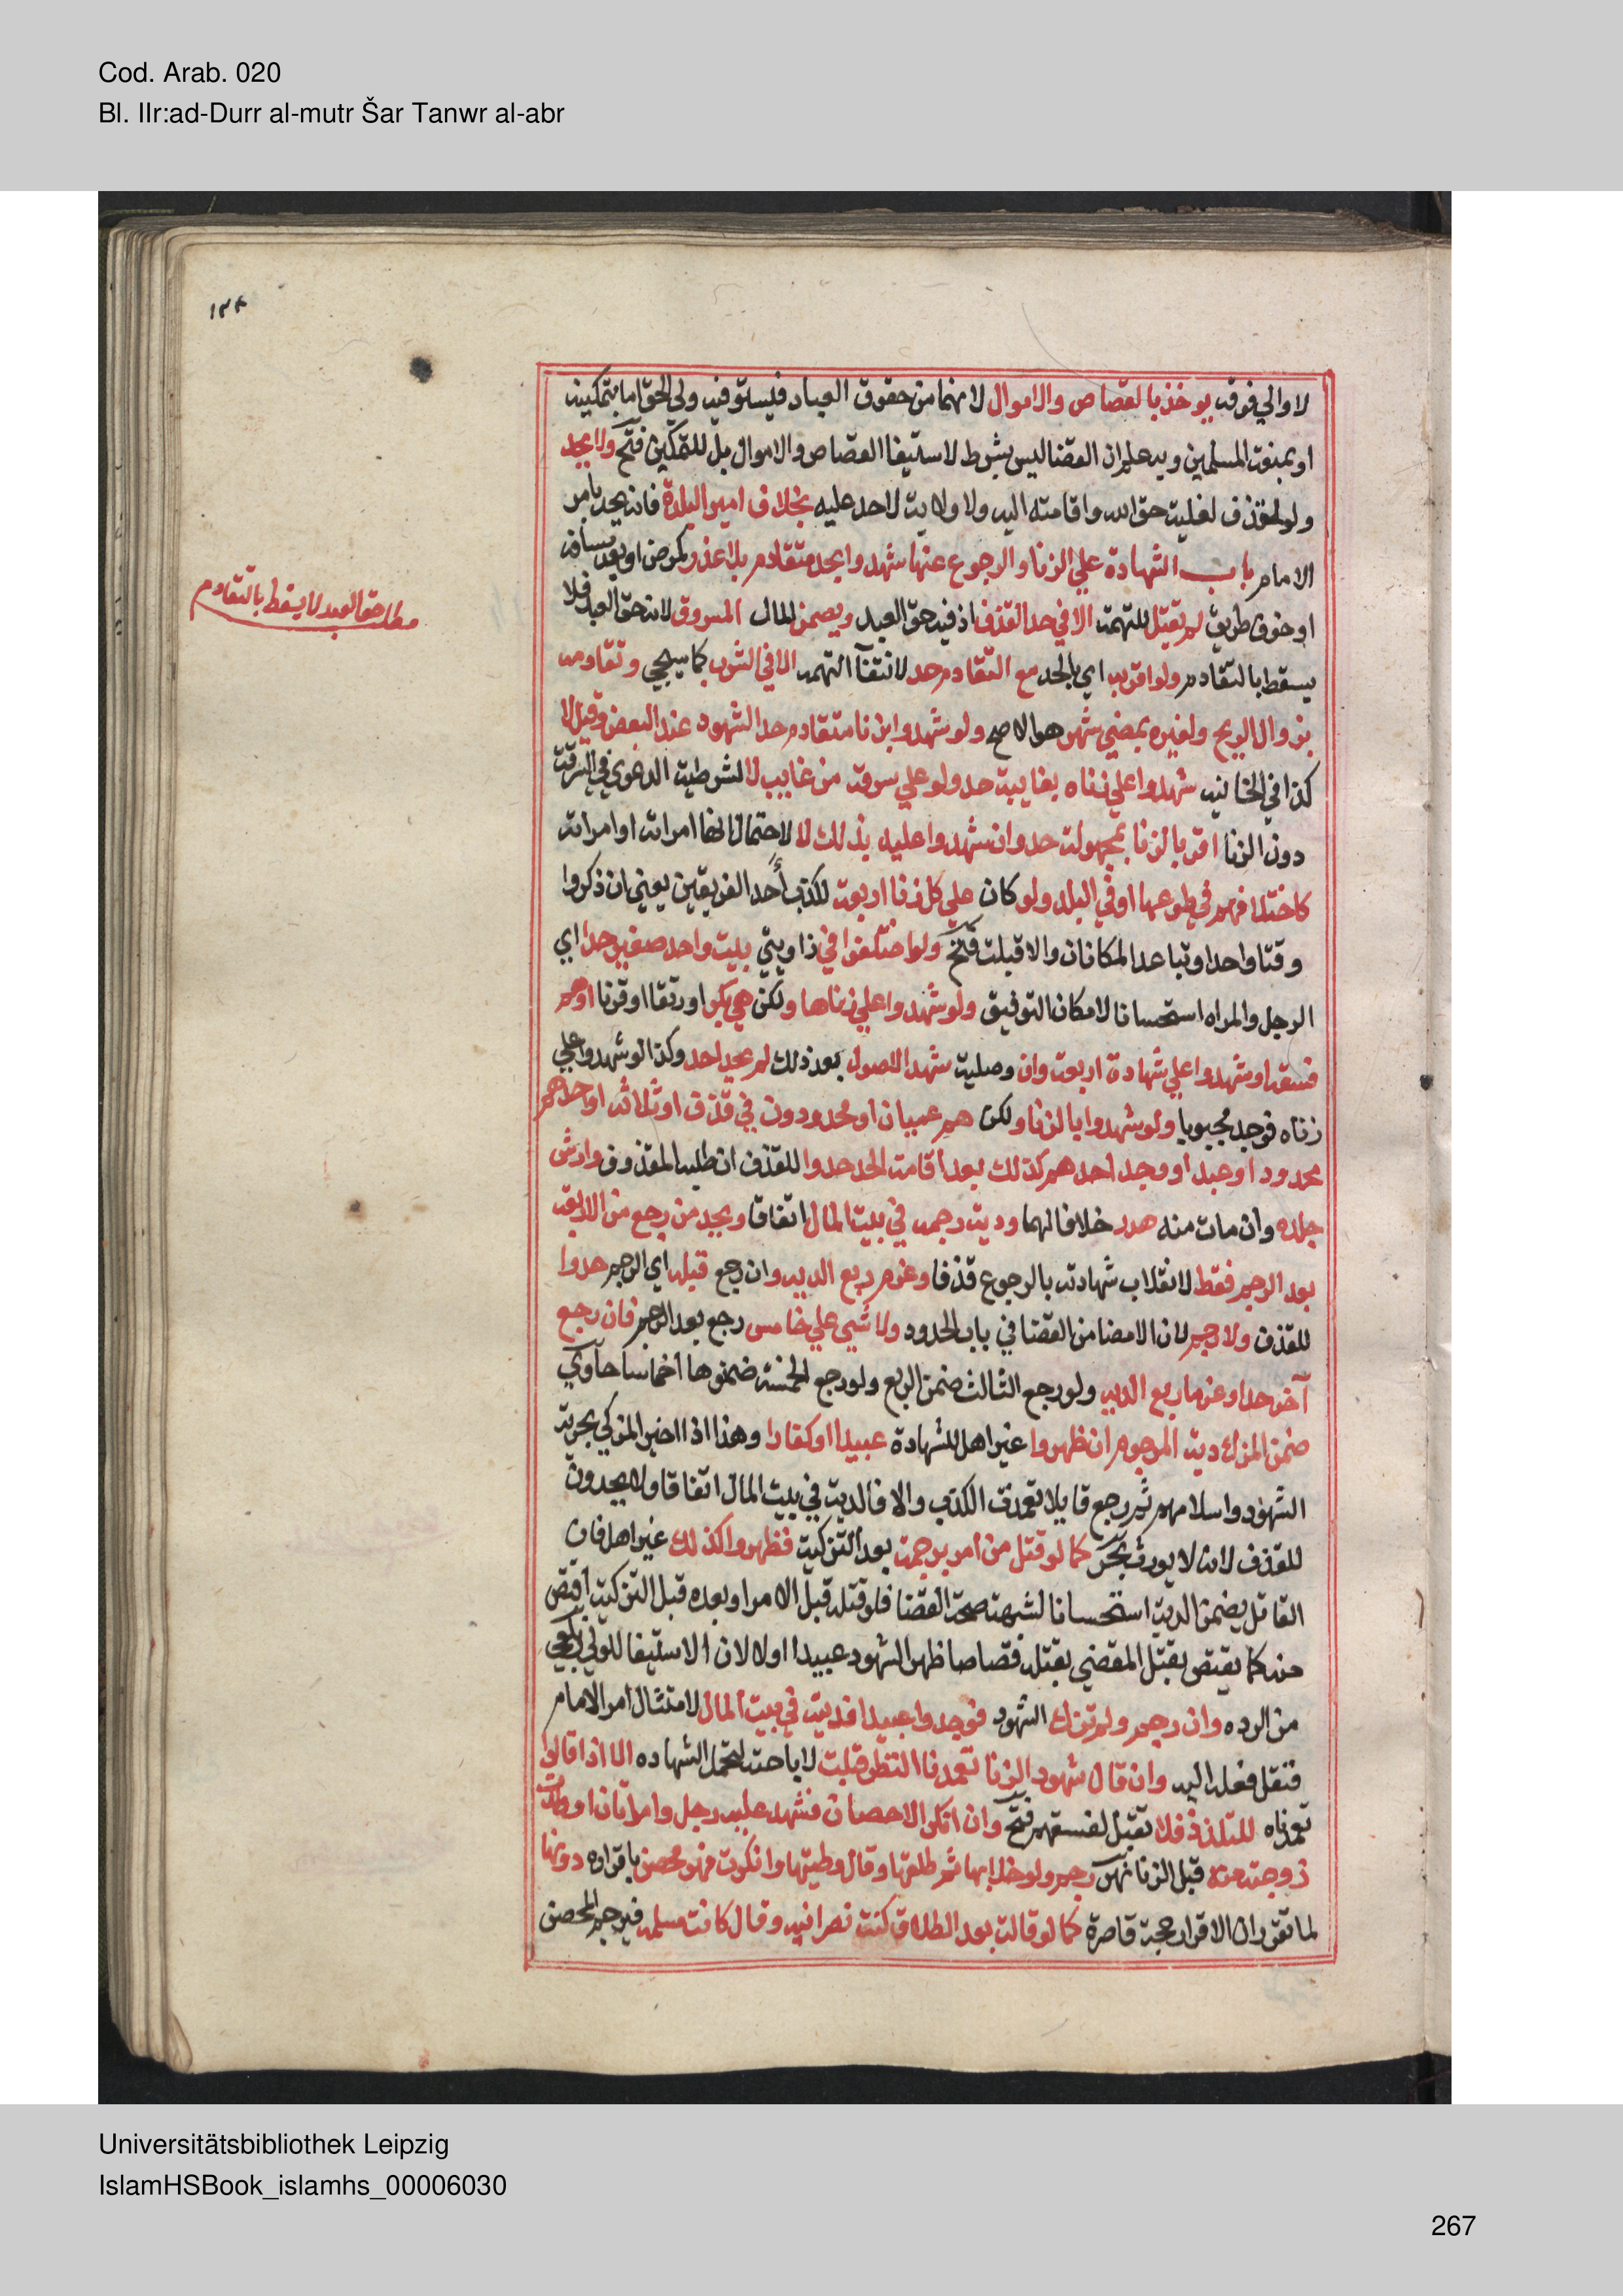 Cod. Arab. 020
Bl. IIr:ad-Durr al-mutr Šar Tanwr al-abr
١٣٢
لا والي فوقه يوخذ بالقصاص والاموال لانهما من حقوق العباد فيستوفيه ولي الحق اما بتمكينه
او بمنعة المسلمين وبه علم ان القضا ليس بشرط لاستيفا القصاص والاموال بل للتمكين فتح ولا يحد
ولو لقذف لغلبة حق الله واقامته اليه ولا ولاية لاحد عليه بخلاف امير البلدة فانه يحد بامر
الامام باب الشهادة علي الزنا والرجوع عنها شهدوا بحد متقادم بلا عذر كمرض او بعد مسافة
او خوف طريق لم تقبل للتهمة الا في حد القذف اذ فيه حق العبد ويضمن المال المسروق لانه حق العبد فلا
مطلب حق العبد لا يسقط بالتقادم
يسقط بالتقادم ولو اقر به اي بالحد مع التقادم حد لانتفآ التهمة الا في الشرب كما سيجي وتقادمه
بزوال الريح ولغيره بمضي شهر هو الاصح ولو شهدوا بزنا متقادم حد الشهود عند البعض وقيل لا
كذا في الخانيه شهدوا علي زناه بغايبة حد ولو علي سرقة من غايب لا لشرطية الدعوي في السرقة
دون الزنا اقر بالزنا بمجهولة حد وان شهدوا عليه بذلك لا لاحتمال انها امراته او امراته
كاختلافهم في طوعها او في البلد ولو كان علي كل زنا اربعة لكذب أحد الفريقين يعني ان ذكروا
وقتا واحدا وتباعد المكانان والا قبلت فتح ولو اختلفوا في زاويتي بيت واحد صغير حدا اي
الرجل والمراه استحسانا لامكان التوفيق ولو شهدوا علي زناها ولكن هي بكر او رتقا او قرنا او هم
فسقه او شهدوا علي شهادة اربعة وان وصلية شهد الاصول بعد ذلك لم يحد احد وكذا لو شهدوا علي
زناه فوجد مجبوبا ولو شهدوا بالزنا ولكن هم عميان او محدودون في قذف او ثلاثه او احدهم
محدود او عبد او وجد احدهم كذلك بعد اقامة الحد حدوا للقذف ان طلبه المقذوف وارش
جلده وان مات منه هدر خلافا لهما ودية رجمه في بيت المال اتفاقا ويحد من رجع من الاربعة
بعد الرجم فقط لانقلاب شهادته بالرجوع قذفا وغرم ربع الديه وان رجع قبله اي الرجم حدوا
للقذف ولا رجم لان الامضا من القضا في باب الحدود ولا شي علي خامس رجع بعد الرجم فان رجع
آخر حدا وغرما ربع الديه ولو رجع الثالث ضمن الربع ولو رجع الخمسة ضمنوها اخماسا حاوي
ضمن المزكي دية المرجوم ان ظهروا غير اهل للشهادة عبيدا او كفارا وهذا اذا اخبر المزكي بحرية
الشهود واسلامهم ثم رجع قايلا تعمدت الكذب والا فالدية في بيت المال اتفاقا ولا يحدون
للقذف لانه لا يورث بحر كما لو قتل من امر برجمه بعد التزكية فظهروا كذلك غير اهل فان
القاتل يضمن الدية استحسانا لشبهة صحة القضا فلو قتله قبل الامر او بعده قبل التزكية اقتص
منه كما يقتص بقتل المقضي بقتله قصاصا ظهر الشهود عبيدا اولا لان الاستيفا للولي زيلعي
من الرده وان رجم ولم تزك الشهود فوجدوا عبيدا فديته في بيت المال لامتثال امر الامام
فنقل فعله اليه وان قال شهود الزنا تعمدنا النظر قبلت لاباحته لتحمل الشهاده الا اذا قالوا
تعمدناه للتلذذ فلا تقبل لفسقهم فتح وان انكر الاحصان فشهد عليه رجل وامراتان او ولدت
زوجته منه قبل الزنا نهر رجم ولو خلا بها ثم طلقها وقال وطيتها وانكرت فهو محصن باقراره دونها
لما تقرر ان الاقرار حجة قاصرة كما لو قالت بعد الطلاق كنت نصرانيه وقال كانت مسلمه فيرجم المحصن
Universitätsbibliothek Leipzig
IslamHSBook_islamhs_00006030
267